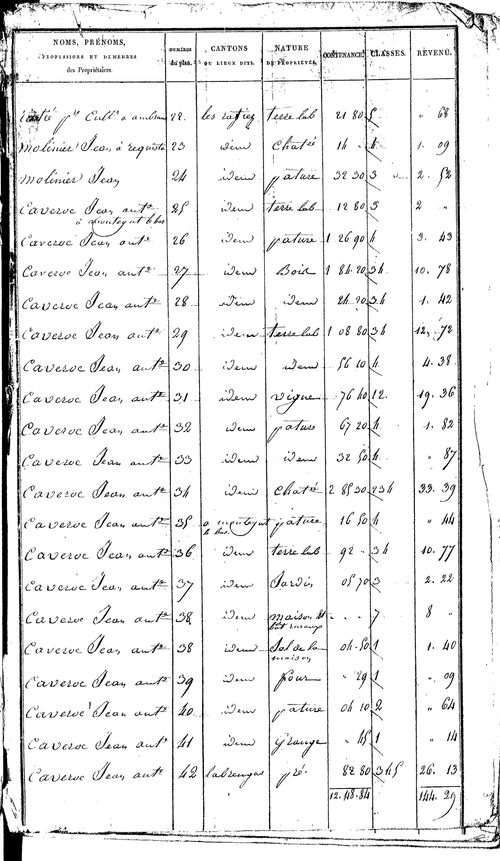 NOMS, PRÉNOMS, PROFESSIONS ET DEMEURES des Propriétaires. NUMÉROS du plan. CANTONS OU LIEUX DITS. NATURE DE PROPRIÉTÉS. CONTENANCE. CLASSES. REVENU.
22. terre lab 21 80 5 " 68
Molinier Jean à requista 23 idem Chatée 14 . 4 1. 09
Molinier Jean 24 idem pature 32 30 3 2. 52
Caveroc Jean ante 25 idem terre lab 12 80 3 2 "
Caveroc Jean ante 26 idem pature 1 26 90 4 3. 43
Caveroc Jean ante 27 idem Bois 1 84 20 34 10. 78
Caveroc Jean ante 28 idem idem 24 20 34 1. 42
Caveroc Jean ante 29 idem terre lab 1 08 80 34 12. 72
Caveroc Jean ante 30 idem idem 56 10 4 4. 38
Caveroc Jean ante 31 idem vigne 76 40 12. 19. 36
Caveroc Jean ante 32 idem pature 67 20 4 1. 82
Caveroc Jean ante 33 idem idem 32 50 4 " 87
Caveroc Jean ante 34 idem Chatée 2 85 30 234 33. 39
Caveroc Jean ante 35 a monteyut le bas pature 16 50 4 " 44
Caveroc Jean ante 36 idem terre lab 92 - 34 10. 77
Caveroc Jean ante 37 idem Jardin 05 70 3 2. 22
Caveroc Jean ante 38 idem maison 7 8 "
Caveroc Jean ante 38 idem Sol de la maison 04 50 1 1. 40
Caveroc Jean ante 39 idem four . 29 1 " 09
Caveroc Jean ante 40 idem pature 04 10 2 " 64
Caveroc Jean ante 41 idem Grange . 45 1 " 14
Caveroc Jean ante 42 labrengas pré 82 80 345 26. 13
12. 48. 84 144. 29